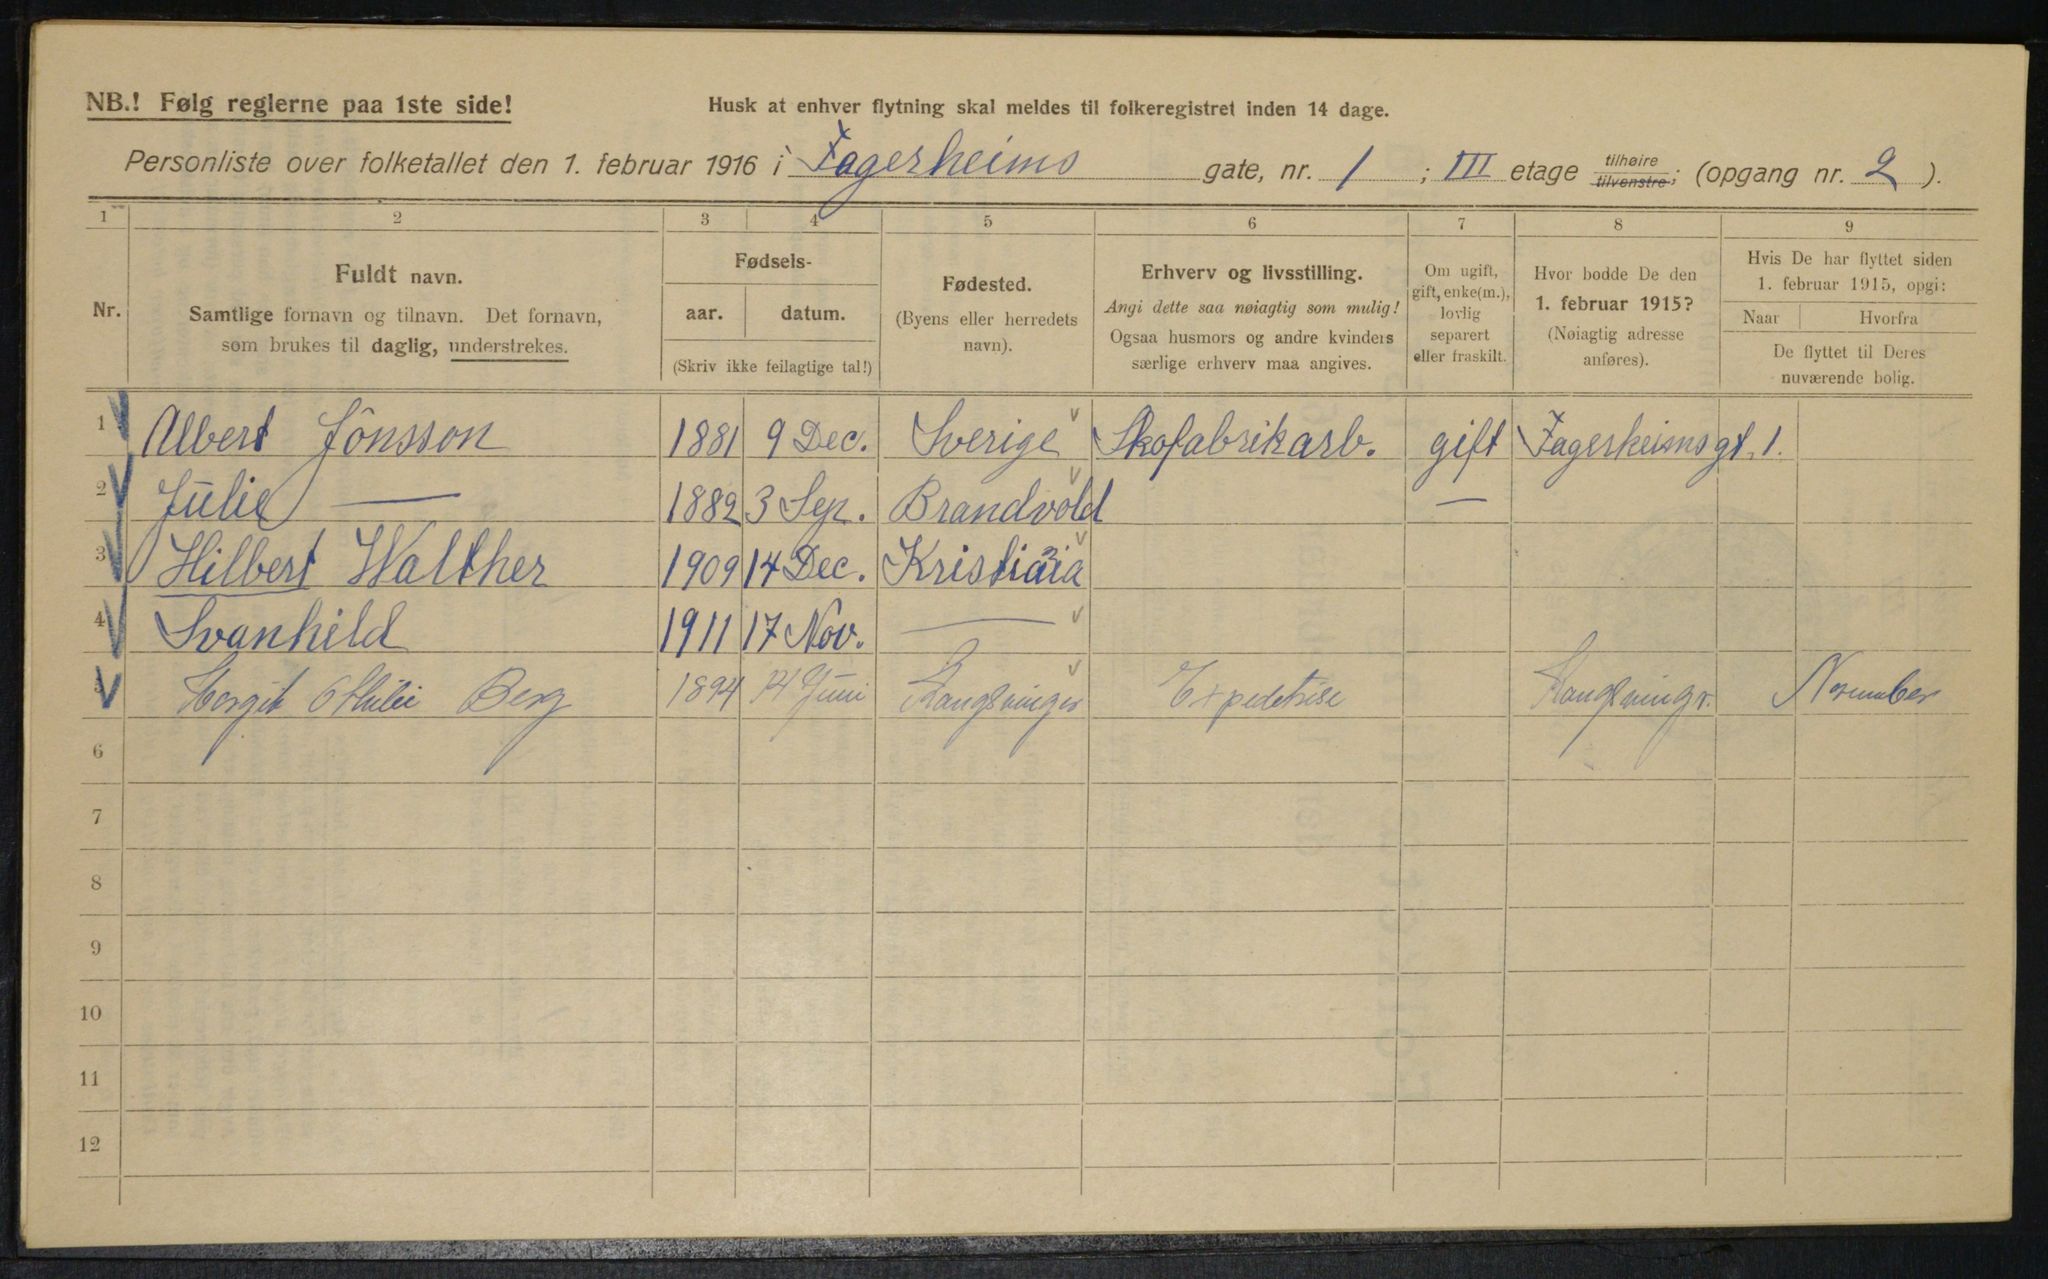 NB.! Følg reglerne paa 1ste side!
Husk at enhver flytning skal meldes til folkeregistret inden 14 dage.
Personliste over folketallet den 1. februar 1916 i Fagerheims gate, nr. 1 ; III etage tilhøire tilvenstre; (opgang nr. 2 ).
1 2 3 4 5 6 7 8 9
Nr.
Fuldt navn.
Samtlige fornavn og tilnavn. Det fornavn,
som brukes til daglig, understrekes.
Fødsels-
aar. datum.
(Skriv ikke feilagtige tal!)
Fødested.
(Byens eller herredets
navn).
Erhverv og livsstilling.
Angi dette saa nøiagtig som mulig!
Ogsaa husmors og andre kvinders
særlige erhverv maa angives.
Om ugift,
gift, enke(m.),
lovlig
separert
eller fraskilt.
Hvor bodde De den
1. februar 1915?
(Nøiagtig adresse
anføres).
Hvis De har flyttet siden
1. februar 1915, opgi:
Naar Hvorfra
De flyttet til Deres
nuværende bolig.
1 Albert Jönsson 1881 9 Dec. Sverige Skofabrikarb. gift Fagerheimsgt. 1.
2 Julie — 1882 3 Sep. Brandvold —
3 Hilbert Walther 1909 14 Dec. Kristiania
4 Svanhild 1911 17 Nov. —
5 Margit Othilie Berg 1894 14 Juni Kongsvinger Expeditrise Kongsvingr. November
6
7
8
9
10
11
12